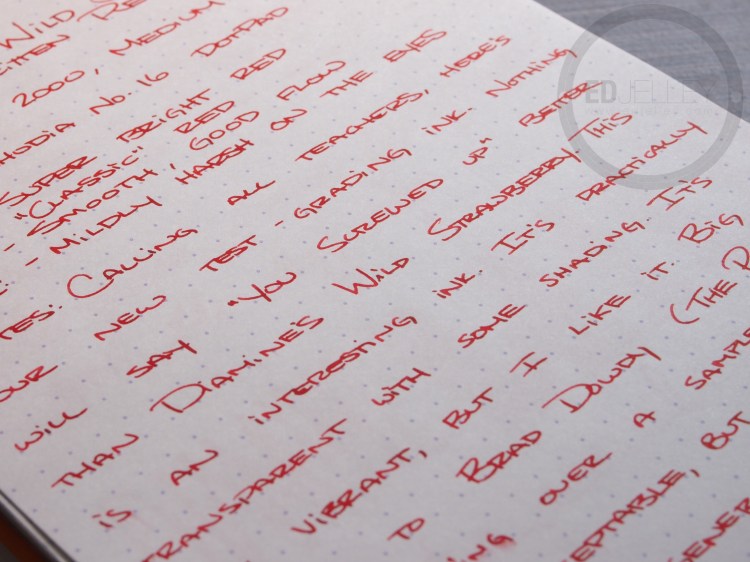 WILD S
ITTEN RE
2000, MEDIUM
HODIA NO. 16 DOTPAD
SUPER BRIGHT RED
"CLASSIC" RED
- SMOOTH, GOOD FLOW
- MILDLY HARSH ON THE EYES
TES: CALLING ALL TEACHERS, HERE'S
OUR NEW TEST-GRADING INK. NOTHING
WILL SAY "YOU SCREWED UP" BETTER
THAN DIAMINE'S WILD STRAWBERRY. THIS
IS AN INTERESTING INK. IT'S PRACTICALLY
TRANSPARENT WITH SOME SHADING. IT'S
VIBRANT, BUT I LIKE IT. BIG
TO BRAD DOWDY (THE P
ING OVER A SAMPLE
EPTABLE, BUT
GENER
EDJELLEY